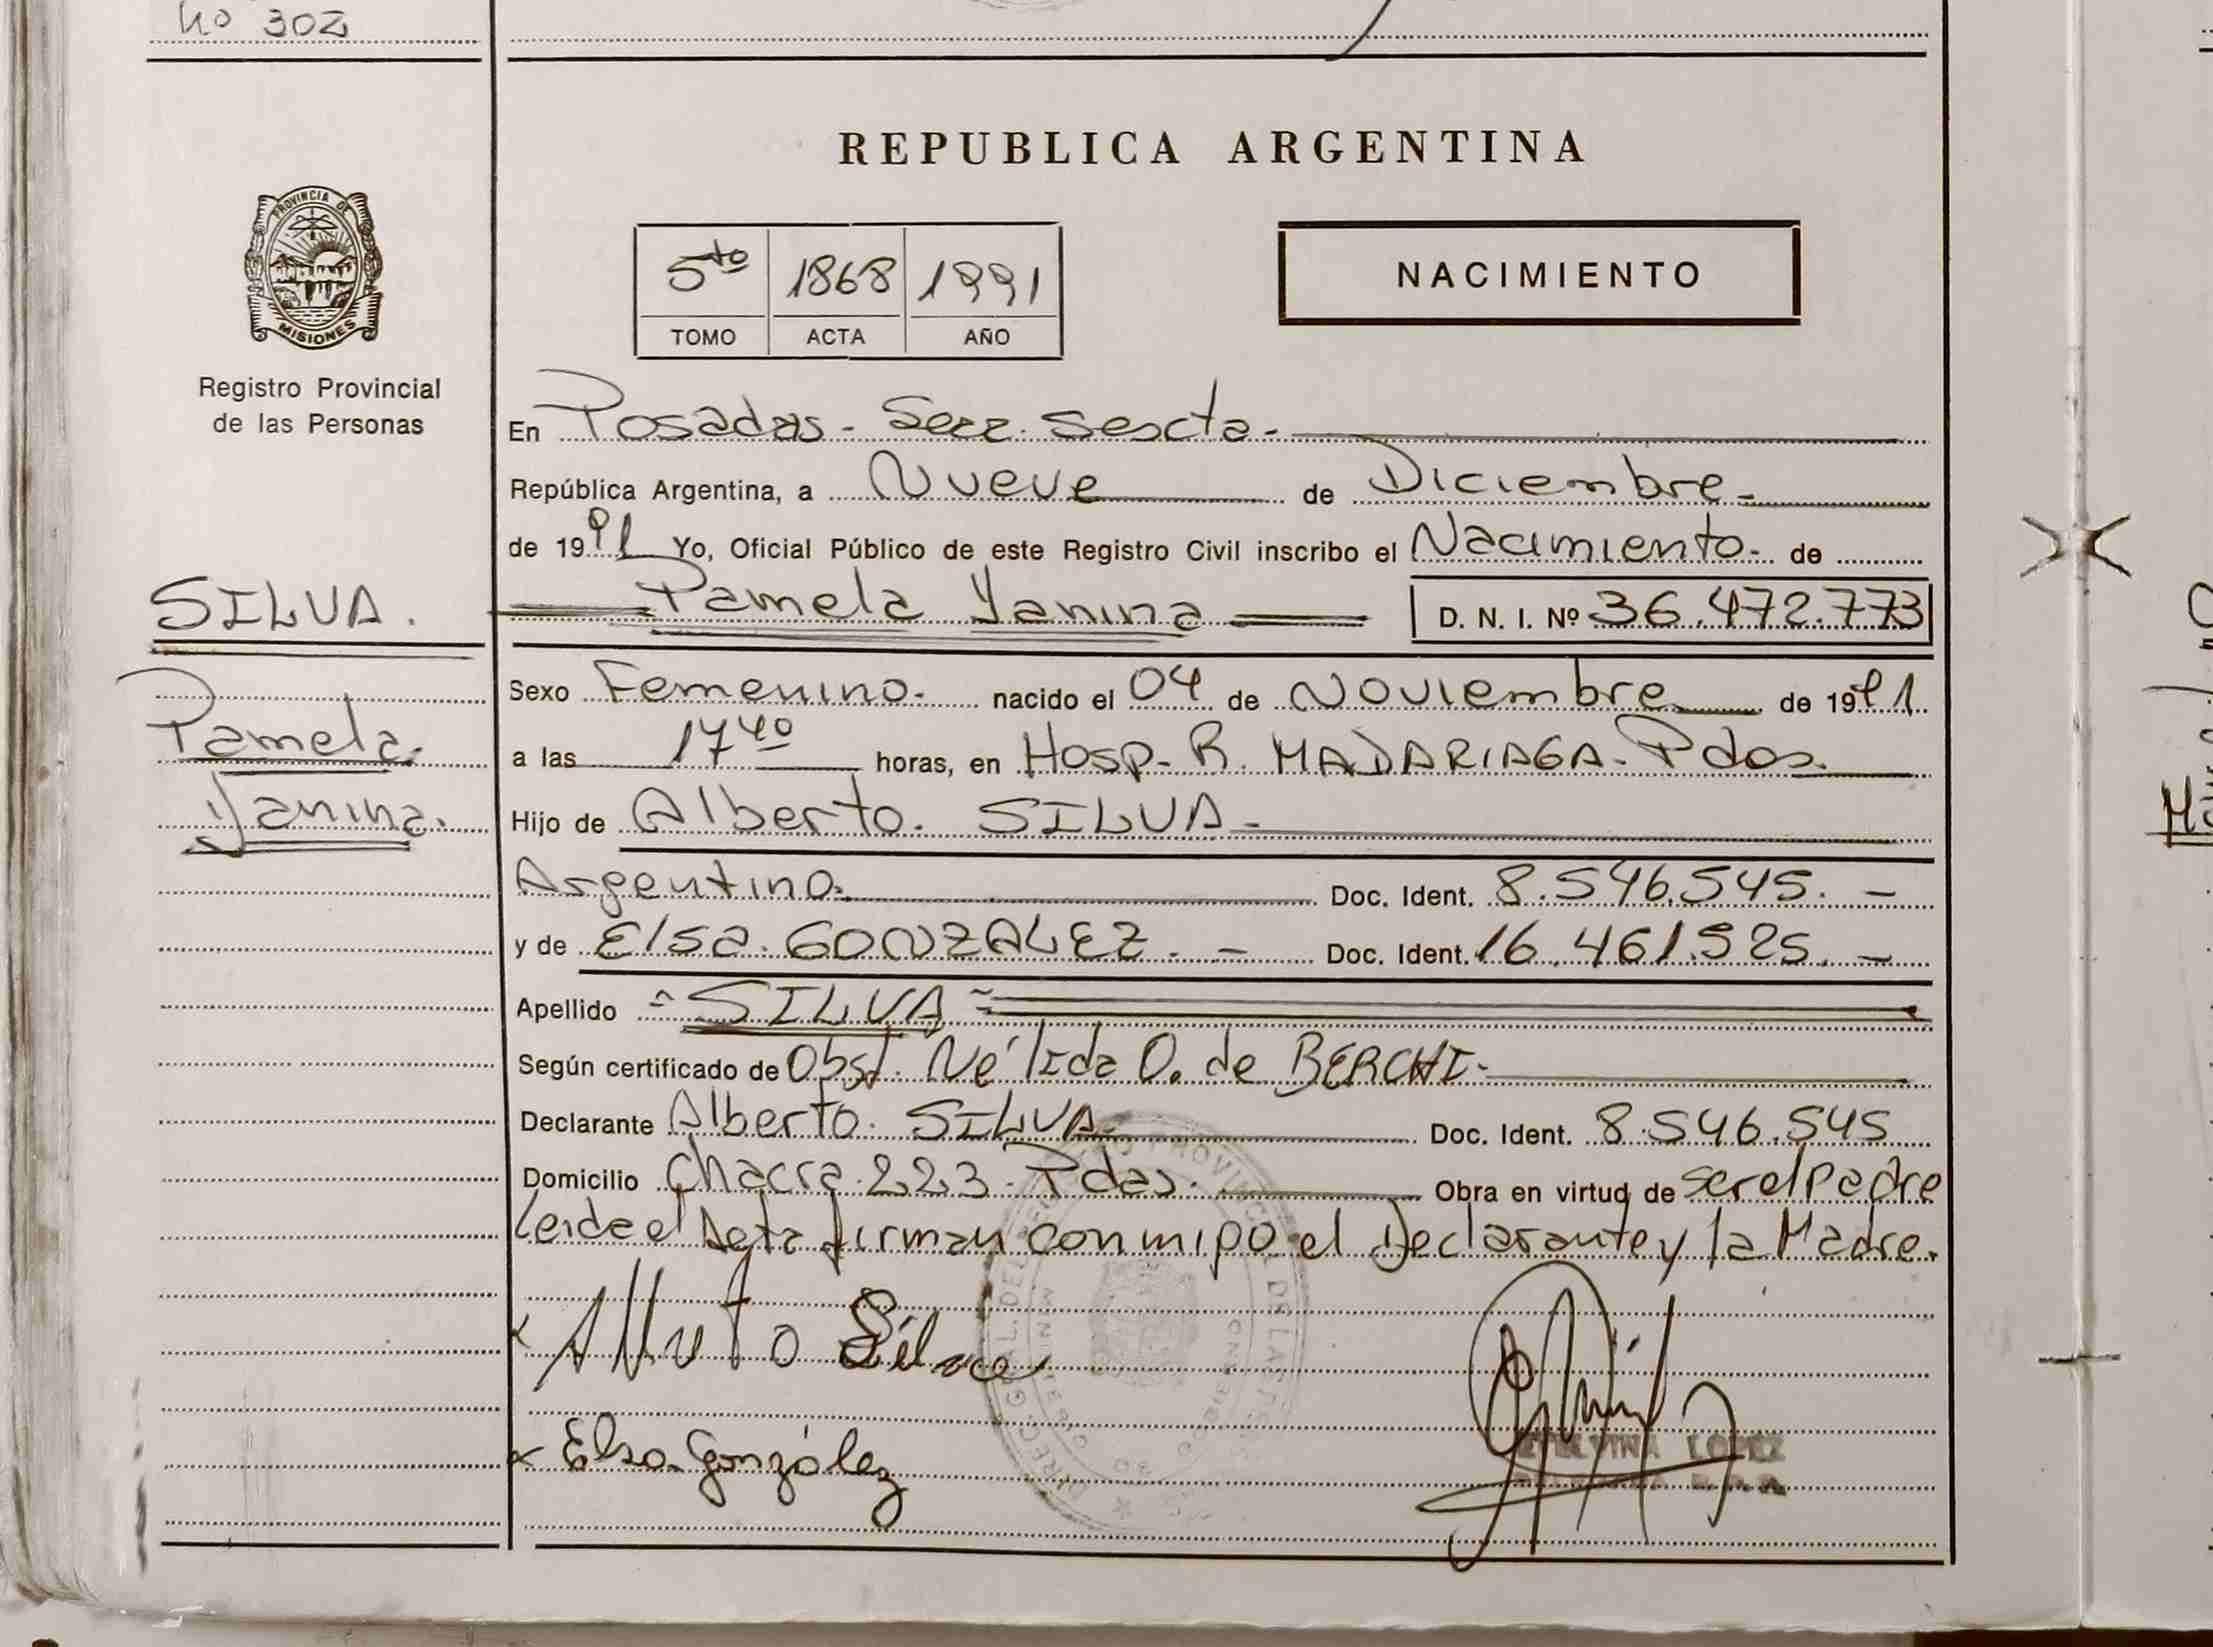 no 302
REPUBLICA ARGENTINA
PROVINCIA DE
MISIONES
5to 1868 1991
TOMO ACTA AÑO
NACIMIENTO
Registro Provincial
de las Personas
En Posadas - Secc. Sescta -
República Argentina, a Nueve de Diciembre -
de 1991 Yo, Oficial Público de este Registro Civil inscribo el Nacimiento - de
SILVA.
Pamela Yanina D. N. I. Nº 36.472.773
Sexo Femenino. nacido el 04 de Noviembre de 1991
Pamela
a las 17 40 horas, en Hosp- R. MADARIAGA - Pdas.
Yanina.
Hijo de Alberto. SILVA -
Argentino. Doc. Ident. 8.546.545. -
y de Elsa. GONZALEZ. - Doc. Ident. 16.461.525. -
Apellido = SILVA =
Según certificado de Obst. Nélida O. de BERCHI -
Declarante Alberto. SILVA Doc. Ident. 8.546.545
Domicilio Chacra 223 - Pdas. Obra en virtud de ser el Padre
Leida el Acta firman conmigo el Declarante y la Madre.
Silva
Elsa González
LOPEZ